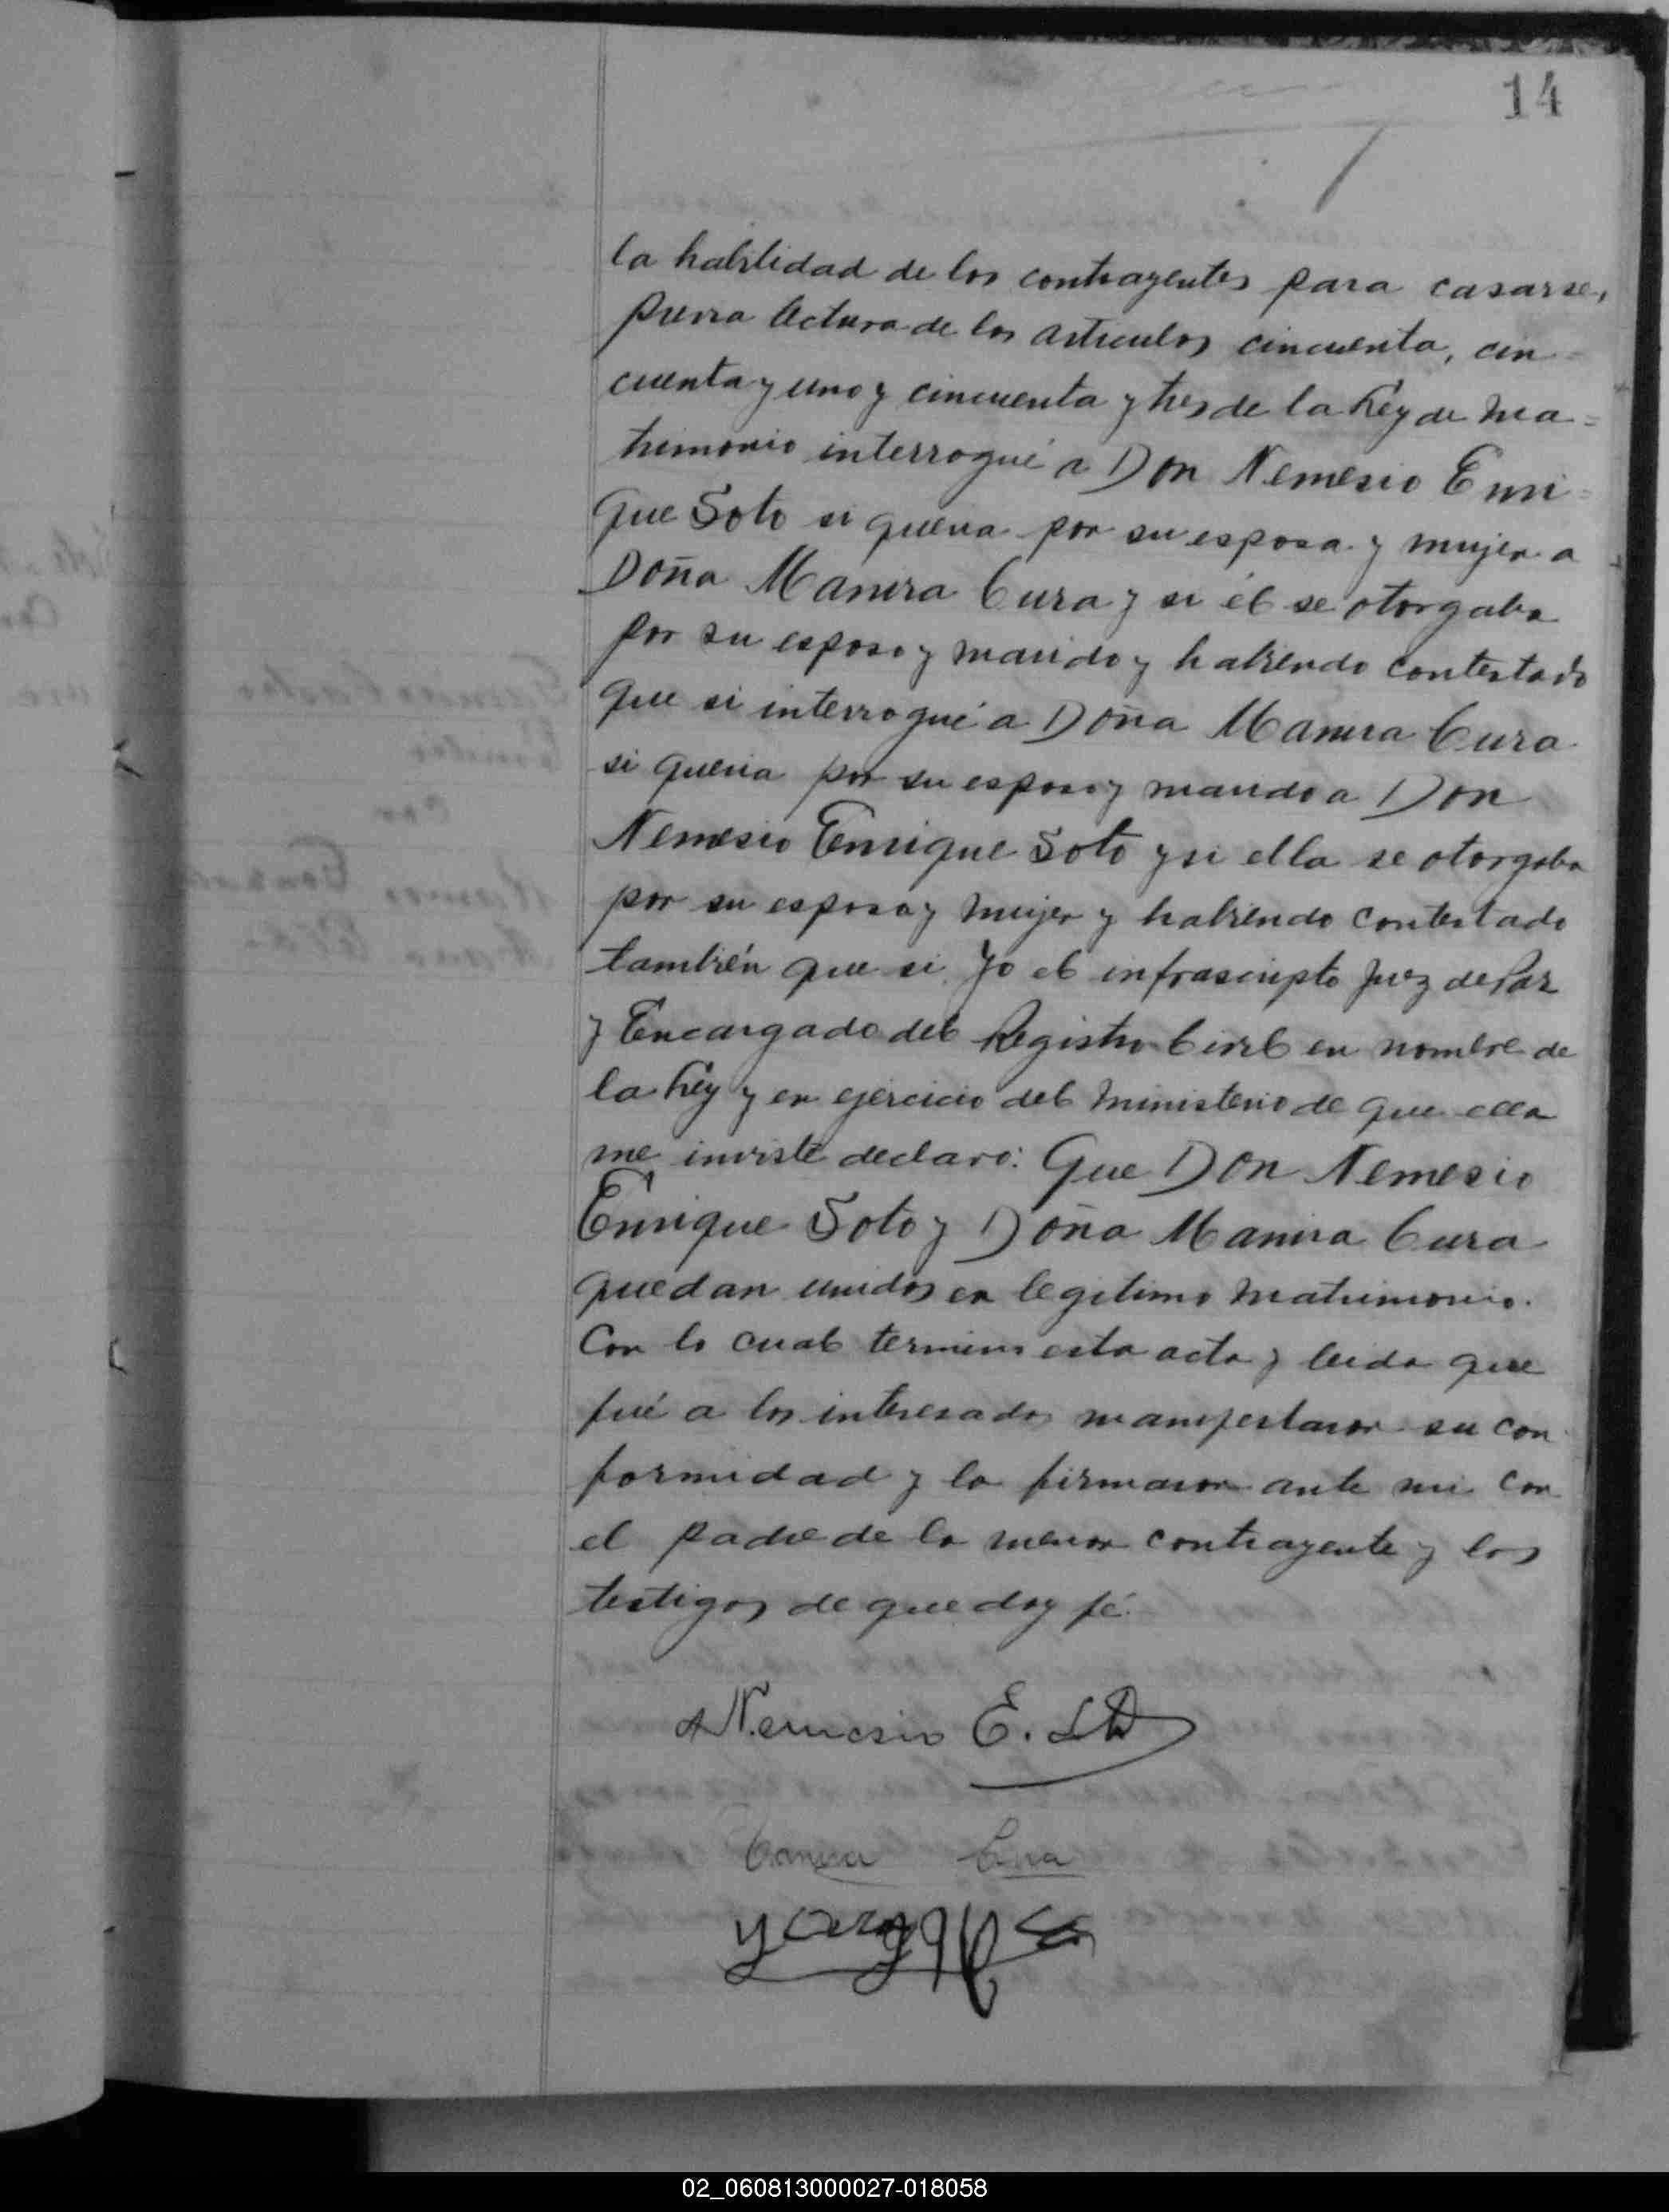 14
la habilidad de los contrayentes para casarse,
previa lectura de los articulos cincuenta, cin=
cuenta y uno y cincuenta y tres de la Ley de Ma=
trimonio interrogué a Don Nemesio Enri=
que Soto si queria por su esposa y mujer a
Doña Manira Cura y si él se otorgaba
por su esposo y marido y habiendo contestado
que si interrogué a Doña Manira Cura
si queria por su esposo y marido a Don
Nemesio Enrique Soto y si ella se otorgaba
por su esposa y mujer y habiendo contestado
también que si. Yo el infrascripto Juez de Paz
y Encargado del Registro Civil en nombre de
la Ley y en ejercicio del Ministerio de que ella
me inviste declaro: Que Don Nemesio
Enrique Soto y Doña Manira Cura
quedan unidos en legitimo Matrimonio.
Con lo cual termino esta acta y leida que
fué a los interesados manifestaron su con
formidad y la firmaron ante mi con
el padre de la menor contrayente y los
testigos de que doy fé.
Nemesio E. Soto
Cura
02_060813000027-018058